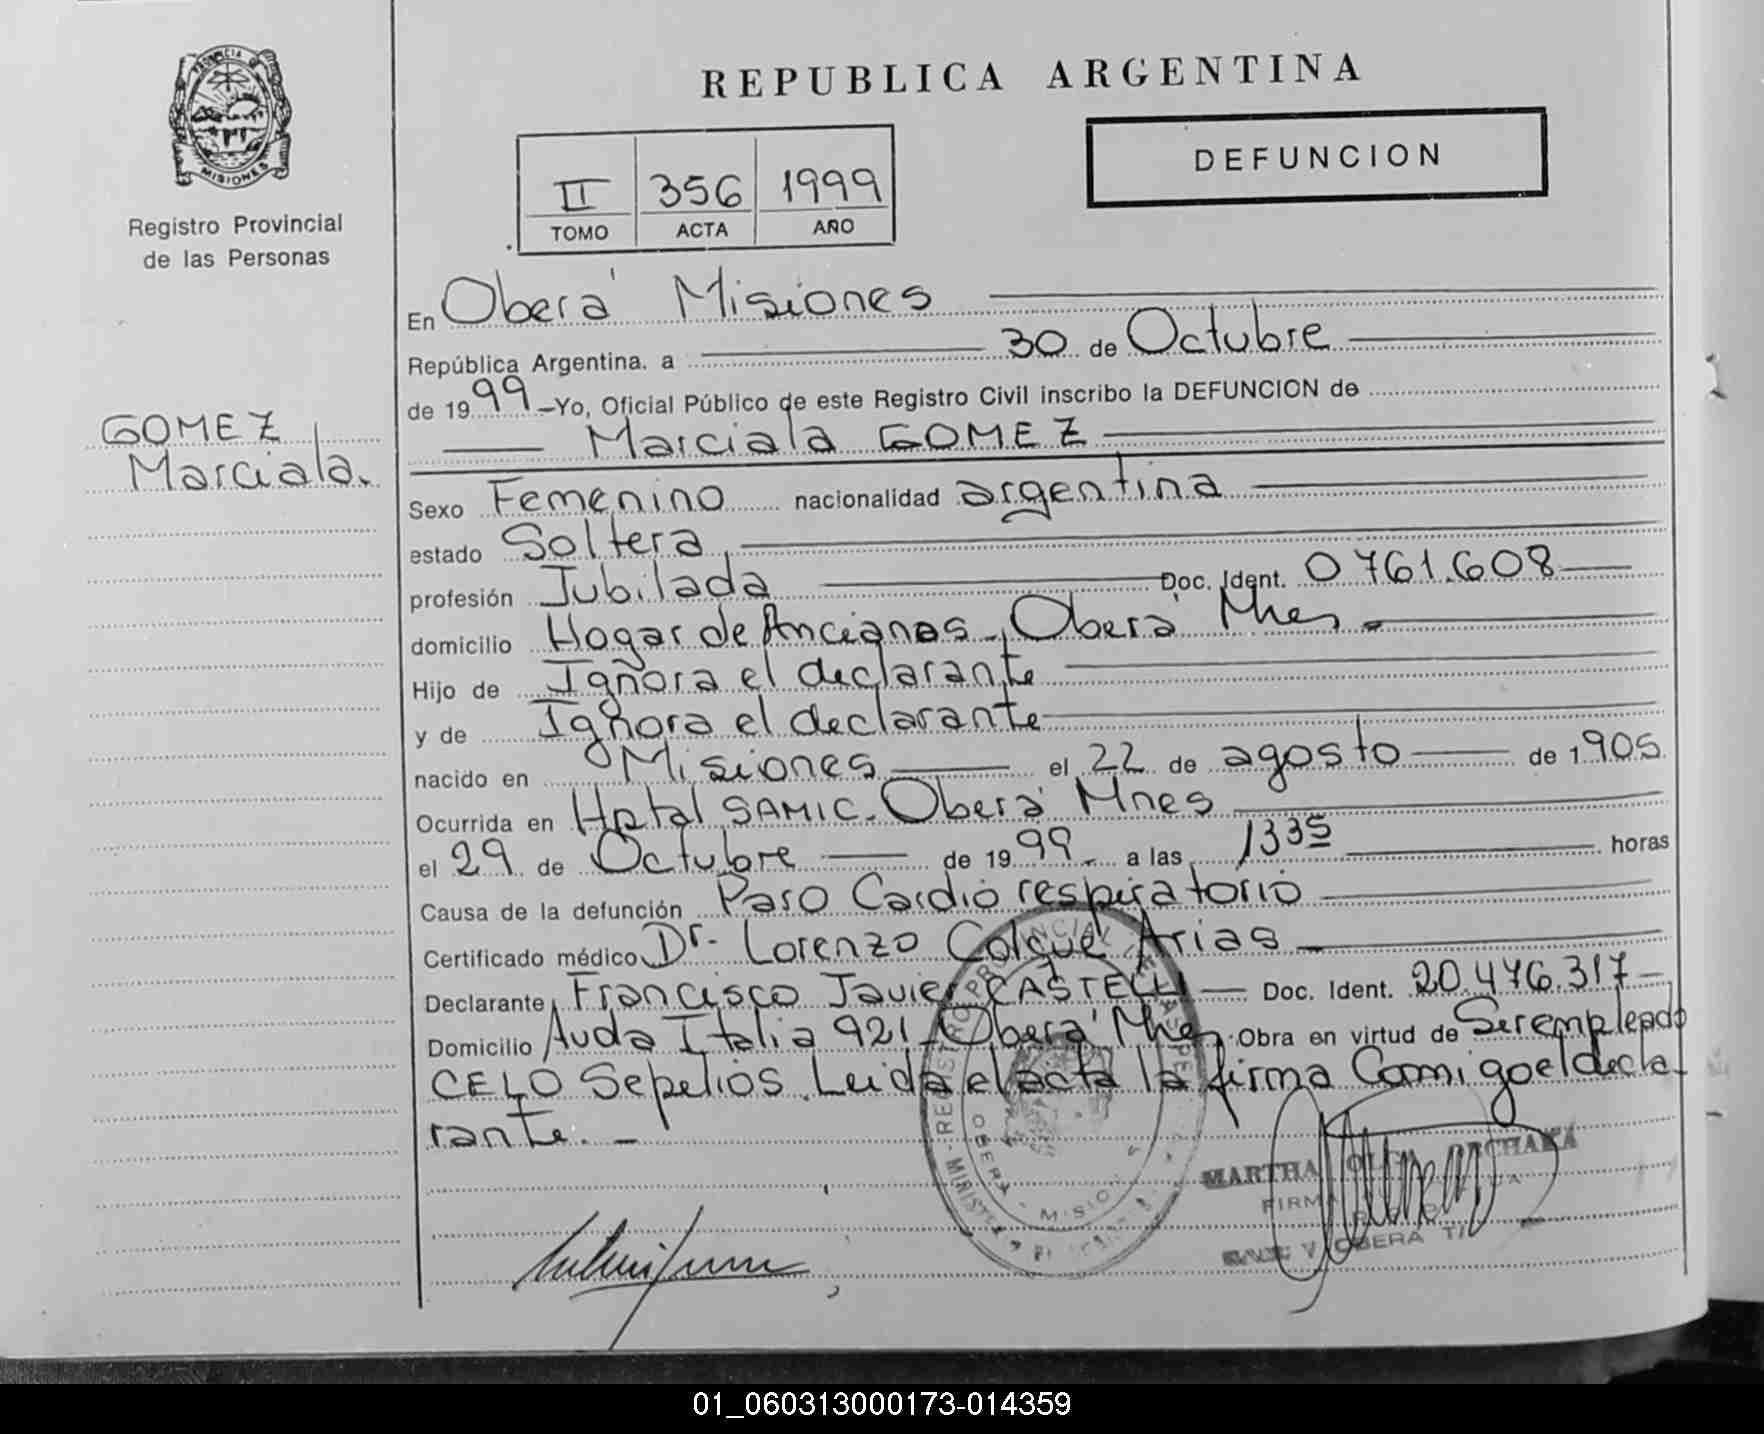 PROVINCIA DE
MISIONES
Registro Provincial
de las Personas
GOMEZ
Marciala.
REPUBLICA ARGENTINA
DEFUNCION
II 356 1999
TOMO ACTA AÑO
En Oberá Misiones
República Argentina. a 30 de Octubre
de 1999 —Yo, Oficial Público de este Registro Civil inscribo la DEFUNCION de
Marciala GOMEZ
Sexo Femenino nacionalidad argentina
estado Soltera
profesión Jubilada Doc. Ident. 0761.608
domicilio Hogar de Ancianos - Oberá Mnes
Hijo de Ignora el declarante
y de Ignora el declarante
nacido en Misiones el 22 de agosto de 1905
Ocurrida en Hptal SAMIC. Oberá Mnes
el 29 de Octubre de 1999 a las 1335 horas
Causa de la defunción Paro Cardio respiratorio
Certificado médico Dr. Lorenzo Colque Arias
Declarante Francisco Javier CASTELLI Doc. Ident. 20.476.317
Domicilio Avda Italia 921 - Oberá Mnes. Obra en virtud de Ser empleado
CELO Sepelios. Leida el acta la firma Comigo el decla-
rante. -
REGISTRO PROVINCIAL DE LAS PE
MINISTE
OBERA - MISIO
MARTHA
FIRMA
OBERA
01_060313000173-014359